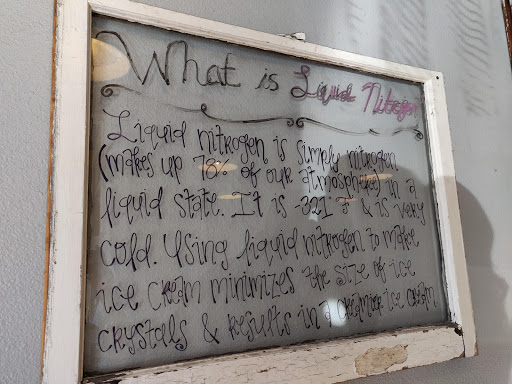 What is Liquid Nitrogen
Liquid nitrogen is simply nitrogen
(makes up 78% of our atmosphere) in a
liquid state. It is -321°F & is very
cold. Using liquid nitrogen to make
ice cream minimizes the size of ice
crystals & results in a creamier ice cream